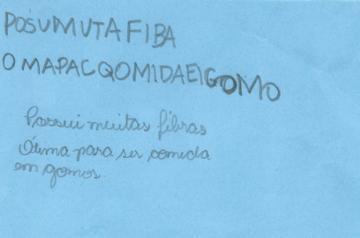 POSUMUTAFIBA
OMAPACQOMIDAEIGOMO
Possui muitas fibras
Ótima para ser comida
em gomos.